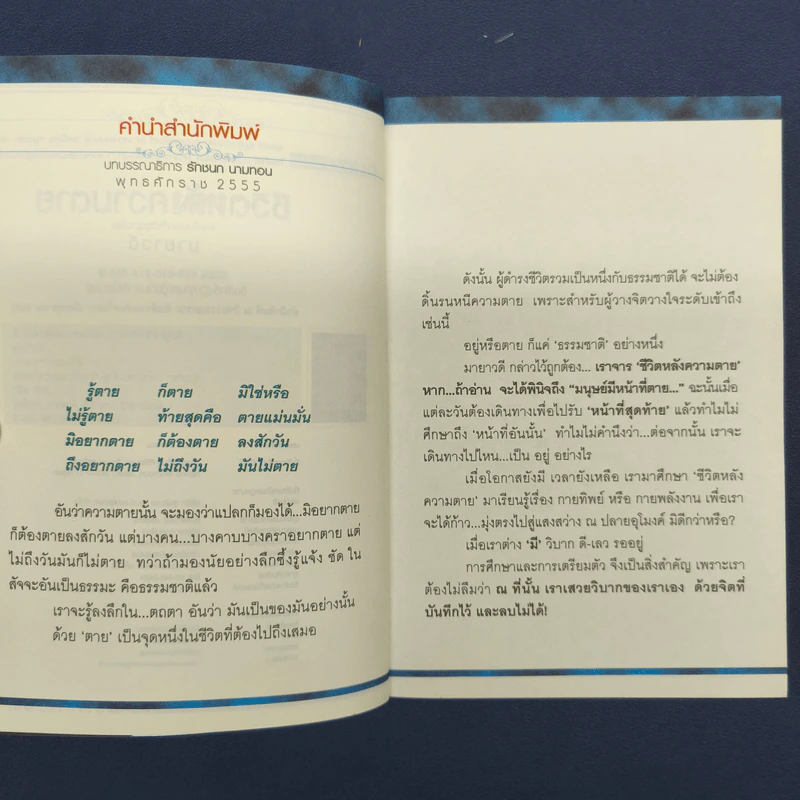 คำนำสำนักพิมพ์
บทบรรณาธิการ รักชนก นามทอน
พุทธศักราช 2555
รู้ตาย ก็ตาย มิใช่หรือ
ไม่รู้ตาย ท้ายสุดคือ ตายแม่นมั่น
มิอยากตาย ก็ต้องตาย ลงสักวัน
ถึงอยากตาย ไม่ถึงวัน มันไม่ตาย
อันว่าความตายนั้น จะมองว่าแปลกก็มองได้...มิอยากตาย
ก็ต้องตายลงสักวัน แต่บางคน...บางคาบบางคราอยากตาย แต่
ไม่ถึงวันมันก็ไม่ตาย ทว่าถ้ามองนัยอย่างลึกซึ้งรู้แจ้ง ชัด ใน
สัจจะอันเป็นธรรมะ คือธรรมชาติแล้ว
เราจะรู้ลงลึกใน...ตถตา อันว่า มันเป็นของมันอย่างนั้น
ด้วย 'ตาย' เป็นจุดหนึ่งในชีวิตที่ต้องไปถึงเสมอ
ดังนั้น ผู้ดำรงชีวิตรวมเป็นหนึ่งกับธรรมชาติได้ จะไม่ต้อง
ดิ้นรนหนีความตาย เพราะสำหรับผู้วางจิตวางใจระดับเข้าถึง
เช่นนี้
อยู่หรือตาย ก็แค่ 'ธรรมชาติ' อย่างหนึ่ง
มายาวดี กล่าวไว้ถูกต้อง... เราจาร 'ชีวิตหลังความตาย'
หาก...ถ้าอ่าน จะได้พินิจถึง "มนุษย์มีหน้าที่ตาย..." ฉะนั้นเมื่อ
แต่ละวันต้องเดินทางเพื่อไปรับ 'หน้าที่สุดท้าย' แล้วทำไมไม่
ศึกษาถึง 'หน้าที่อันนั้น' ทำไมไม่คำนึงว่า...ต่อจากนั้น เราจะ
เดินทางไปไหน...เป็น อยู่ อย่างไร
เมื่อโอกาสยังมี เวลายังเหลือ เรามาศึกษา 'ชีวิตหลัง
ความตาย' มาเรียนรู้เรื่อง กายทิพย์ หรือ กายพลังงาน เพื่อเรา
จะได้ก้าว...มุ่งตรงไปสู่แสงสว่าง ณ ปลายอุโมงค์ มิดีกว่าหรือ?
เมื่อเราต่าง 'มี' วิบาก ดี-เลว รออยู่
การศึกษาและการเตรียมตัว จึงเป็นสิ่งสำคัญ เพราะเรา
ต้องไม่ลืมว่า ณ ที่นั้น เราเสวยวิบากของเราเอง ด้วยจิตที่
บันทึกไว้ และลบไม่ได้!